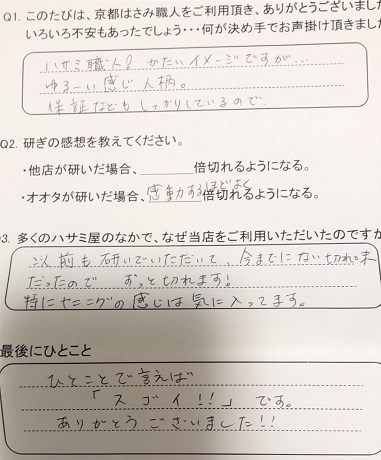 Q1. このたびは、京都はさみ職人をご利用頂き、ありがとうございまし
いろいろ不安もあったでしょう・・・何が決め手でお声掛け頂きまし
ハサミ職人！かたいイメージですが…
ゆるーい感じ 人柄。
保証などもしっかりしているので
Q2. 研ぎの感想を教えてください。
・他店が研いだ場合、　　　倍切れるようになる。
・オオタが研いだ場合、感動するほどよく倍切れるようになる。
3. 多くのハサミ屋のなかで、なぜ当店をご利用いただいたのですか
以前も研いでいただいて、今までにない切れ味
だったので ずっと切れます！
特にセニングの感じは気に入ってます。
最後にひとこと
ひとことで言えば
「スゴイ!!」です。
ありがとうございました!!